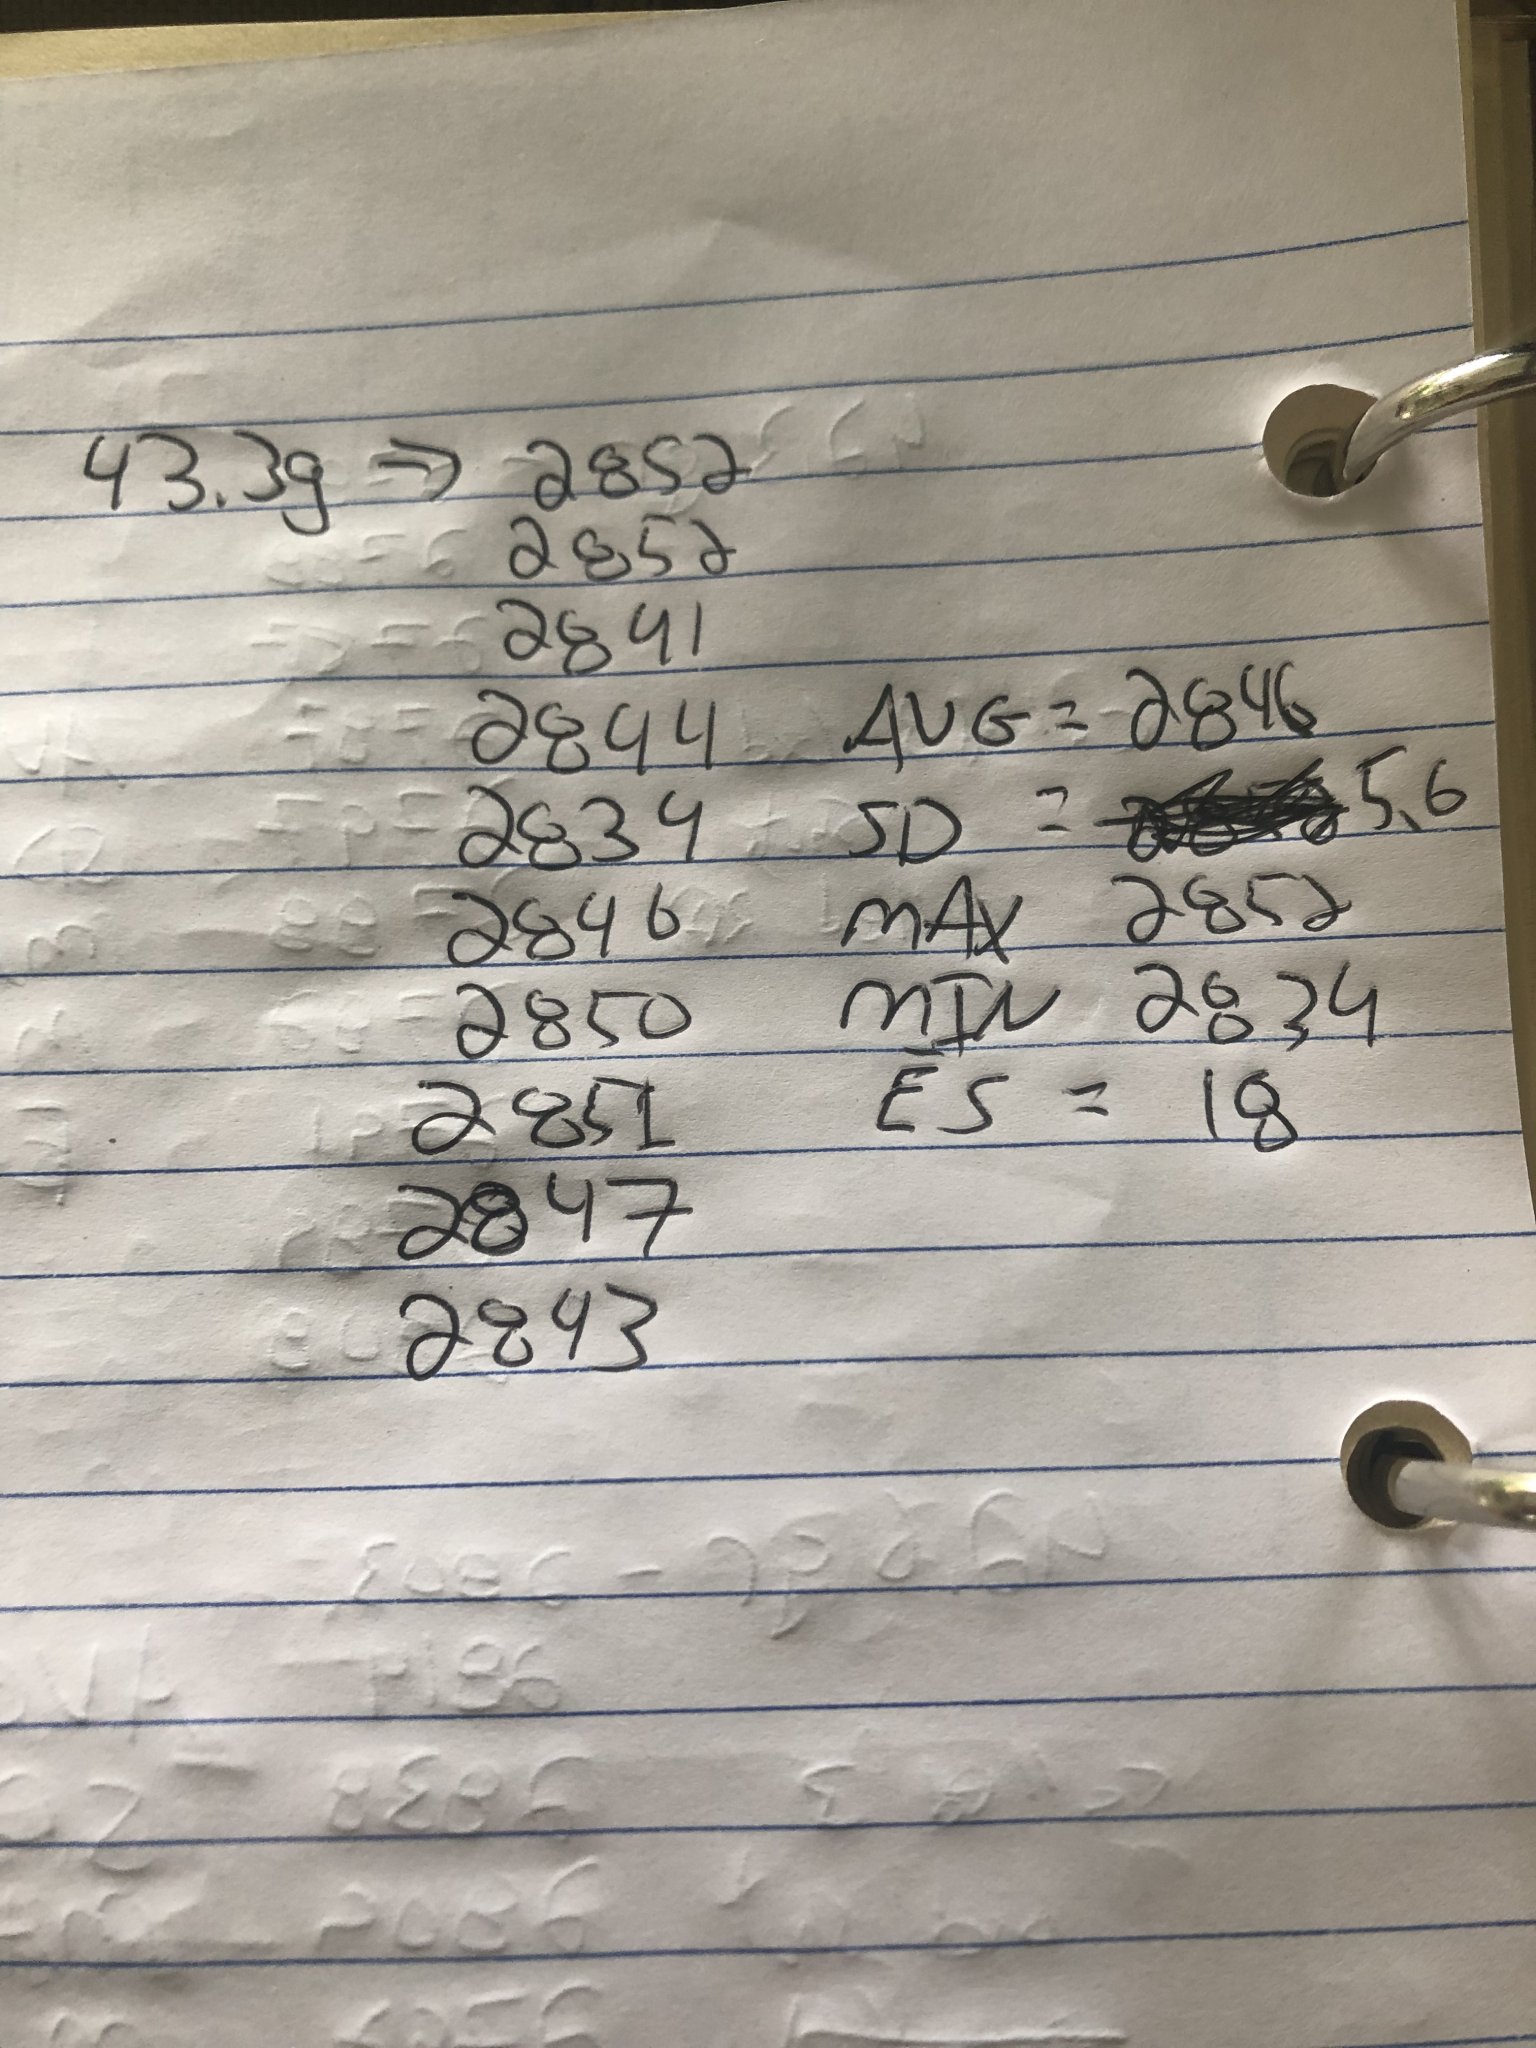 43.3g => 2852
2852
2841
2844 AVG = 2846
2834 SD = 5.6
2846 MAX 2852
2850 MIN 2834
2851 ES = 18
2847
2843